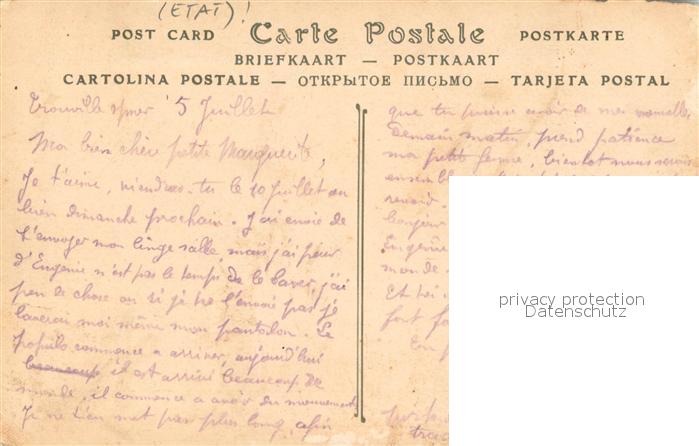 (ETAT)!
POST CARD Carte Postale POSTKARTE
BRIEFKAART — POSTKAART
CARTOLINA POSTALE — ОТКРЫТОЕ ПИСЬМО — TARJETA POSTAL
Trouville s/mer 5 Juillet
Ma bien chère petite Marguerite,
Je t'aime, viendras-tu le 10 Juillet ou
bien dimanche prochain. J'ai envie de
t'envoyer mon linge salle, mais j'ai peur
d'Eugenie n'est pas le temps de le laver, j'ai
peu de chose ou si je ne l'envoie pas je
laverai moi même mon pantalon. Le
populo commence a arriver, aujourd'hui
beaucoup il est arrivé beaucoup de
monde, il commence a avoir du mouvement
Je ne t'en met pas plus long, afin
que tu puisse avoir de mes nouvelles
demain matin, prend patience
ma petite femme, bientot nous
ensemble
revoir.
bonjour
Eugenie
monde
Et toi
fort
En
privacy protection
Datenschutz